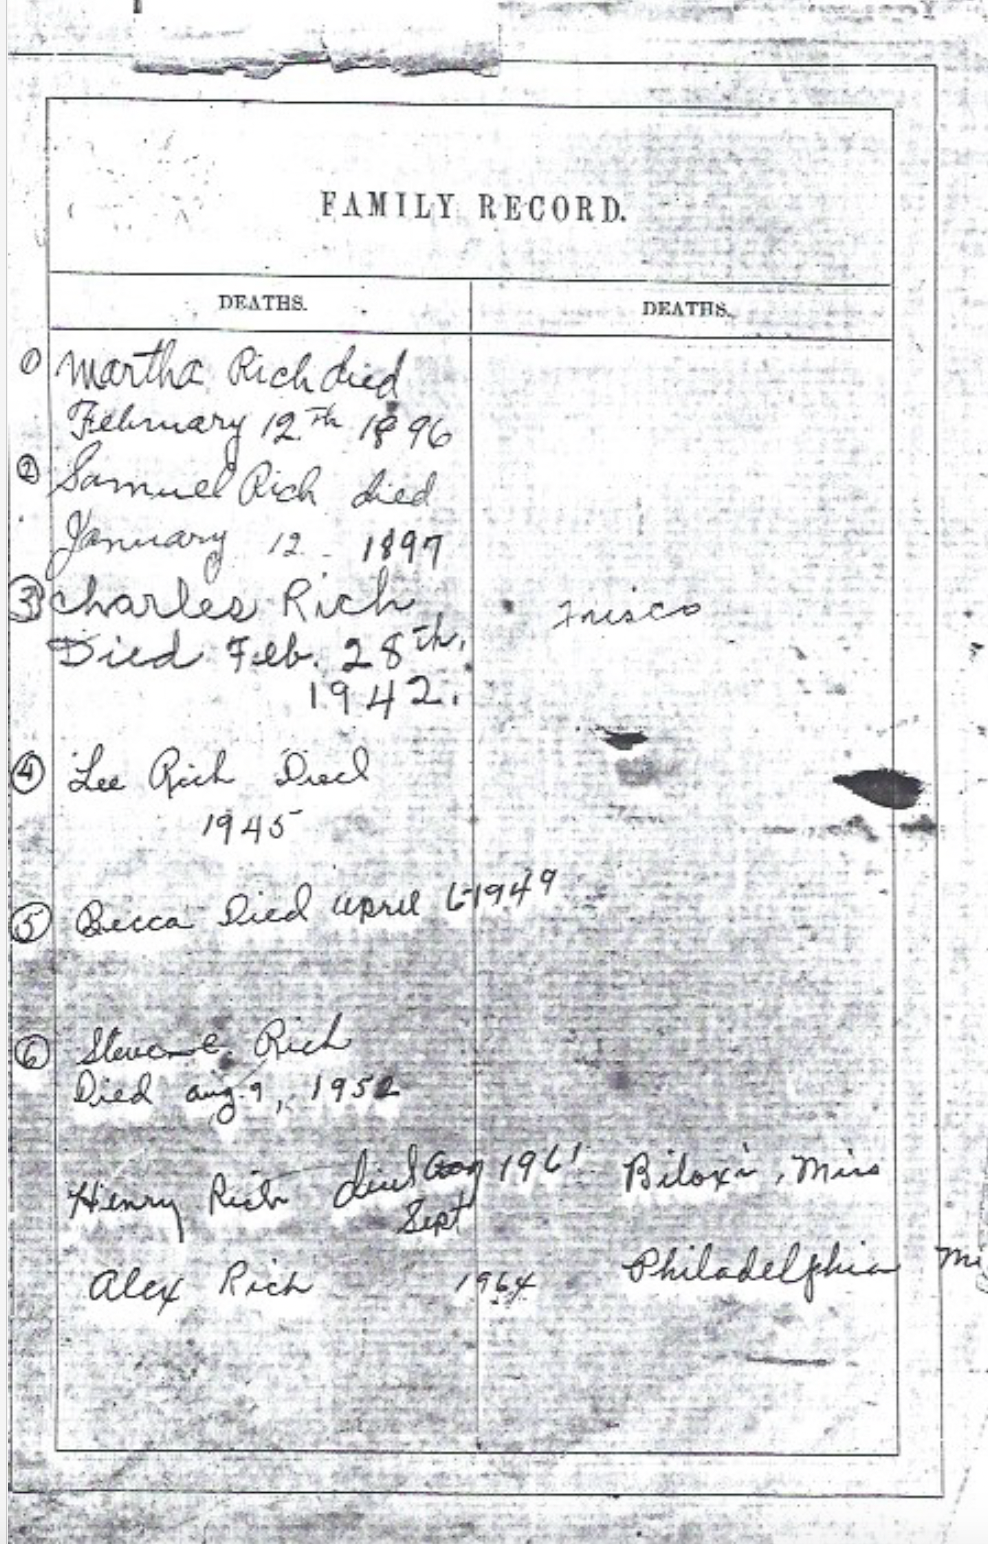 FAMILY RECORD.
DEATHS. DEATHS.
① Martha Rich died
February 12th 1896
② Samuel Rich died
January 12 1897
③ Charles Rich Frisco
Died Feb. 28th.
1942.
④ Lee Rich Died
1945
⑤ Becca Died April 6-1949
⑥ Rich
Died Aug. 9, 1952
Henry Rich died Aug 1961 Biloxi, Miss
Sept
Alex Rich 1964 Philadelphia Mi